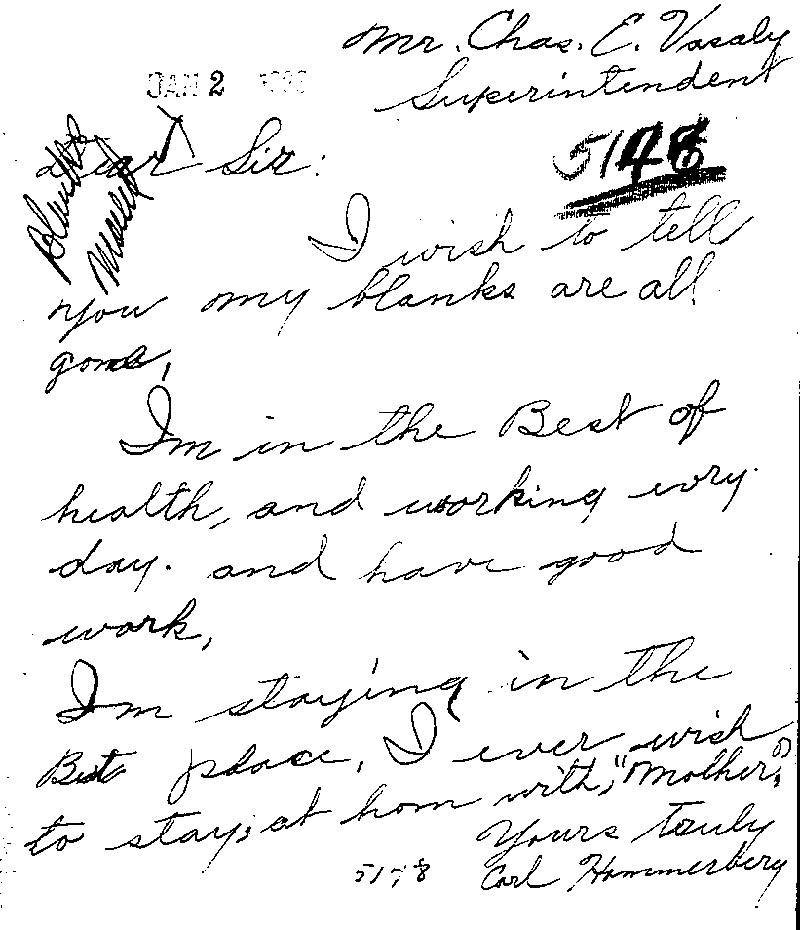 Mr. Chas. E. Vasaly
Superintendent
JAN 2
Dear Sir:
5148
Blanks
Mailed
I wish to tell
you my blanks are all
gone,
Im in the Best of
health, and working evry
day. and have good
work,
Im staying in the
Best place, I ever wish
to stay, at hom with, "Mother",
Yours truly
Carl Hammerberg
5178